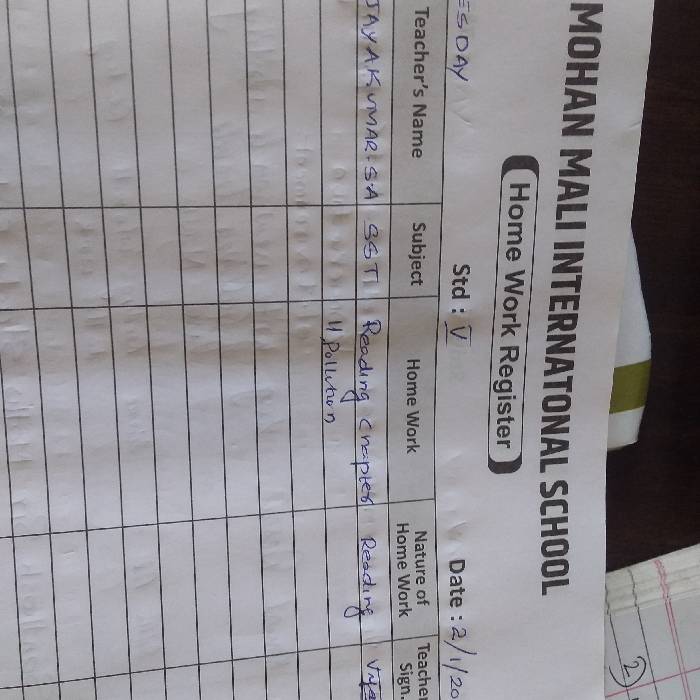 MOHAN MALI INTERNATONAL SCHOOL
Home Work Register
ESDAY Std : V Date : 2/1/20
Teacher's Name Subject Home Work Nature of Home Work Teacher Sign.
JAYAKUMAR.S.A SST Reading Chapter Reading
11 Pollution
2)